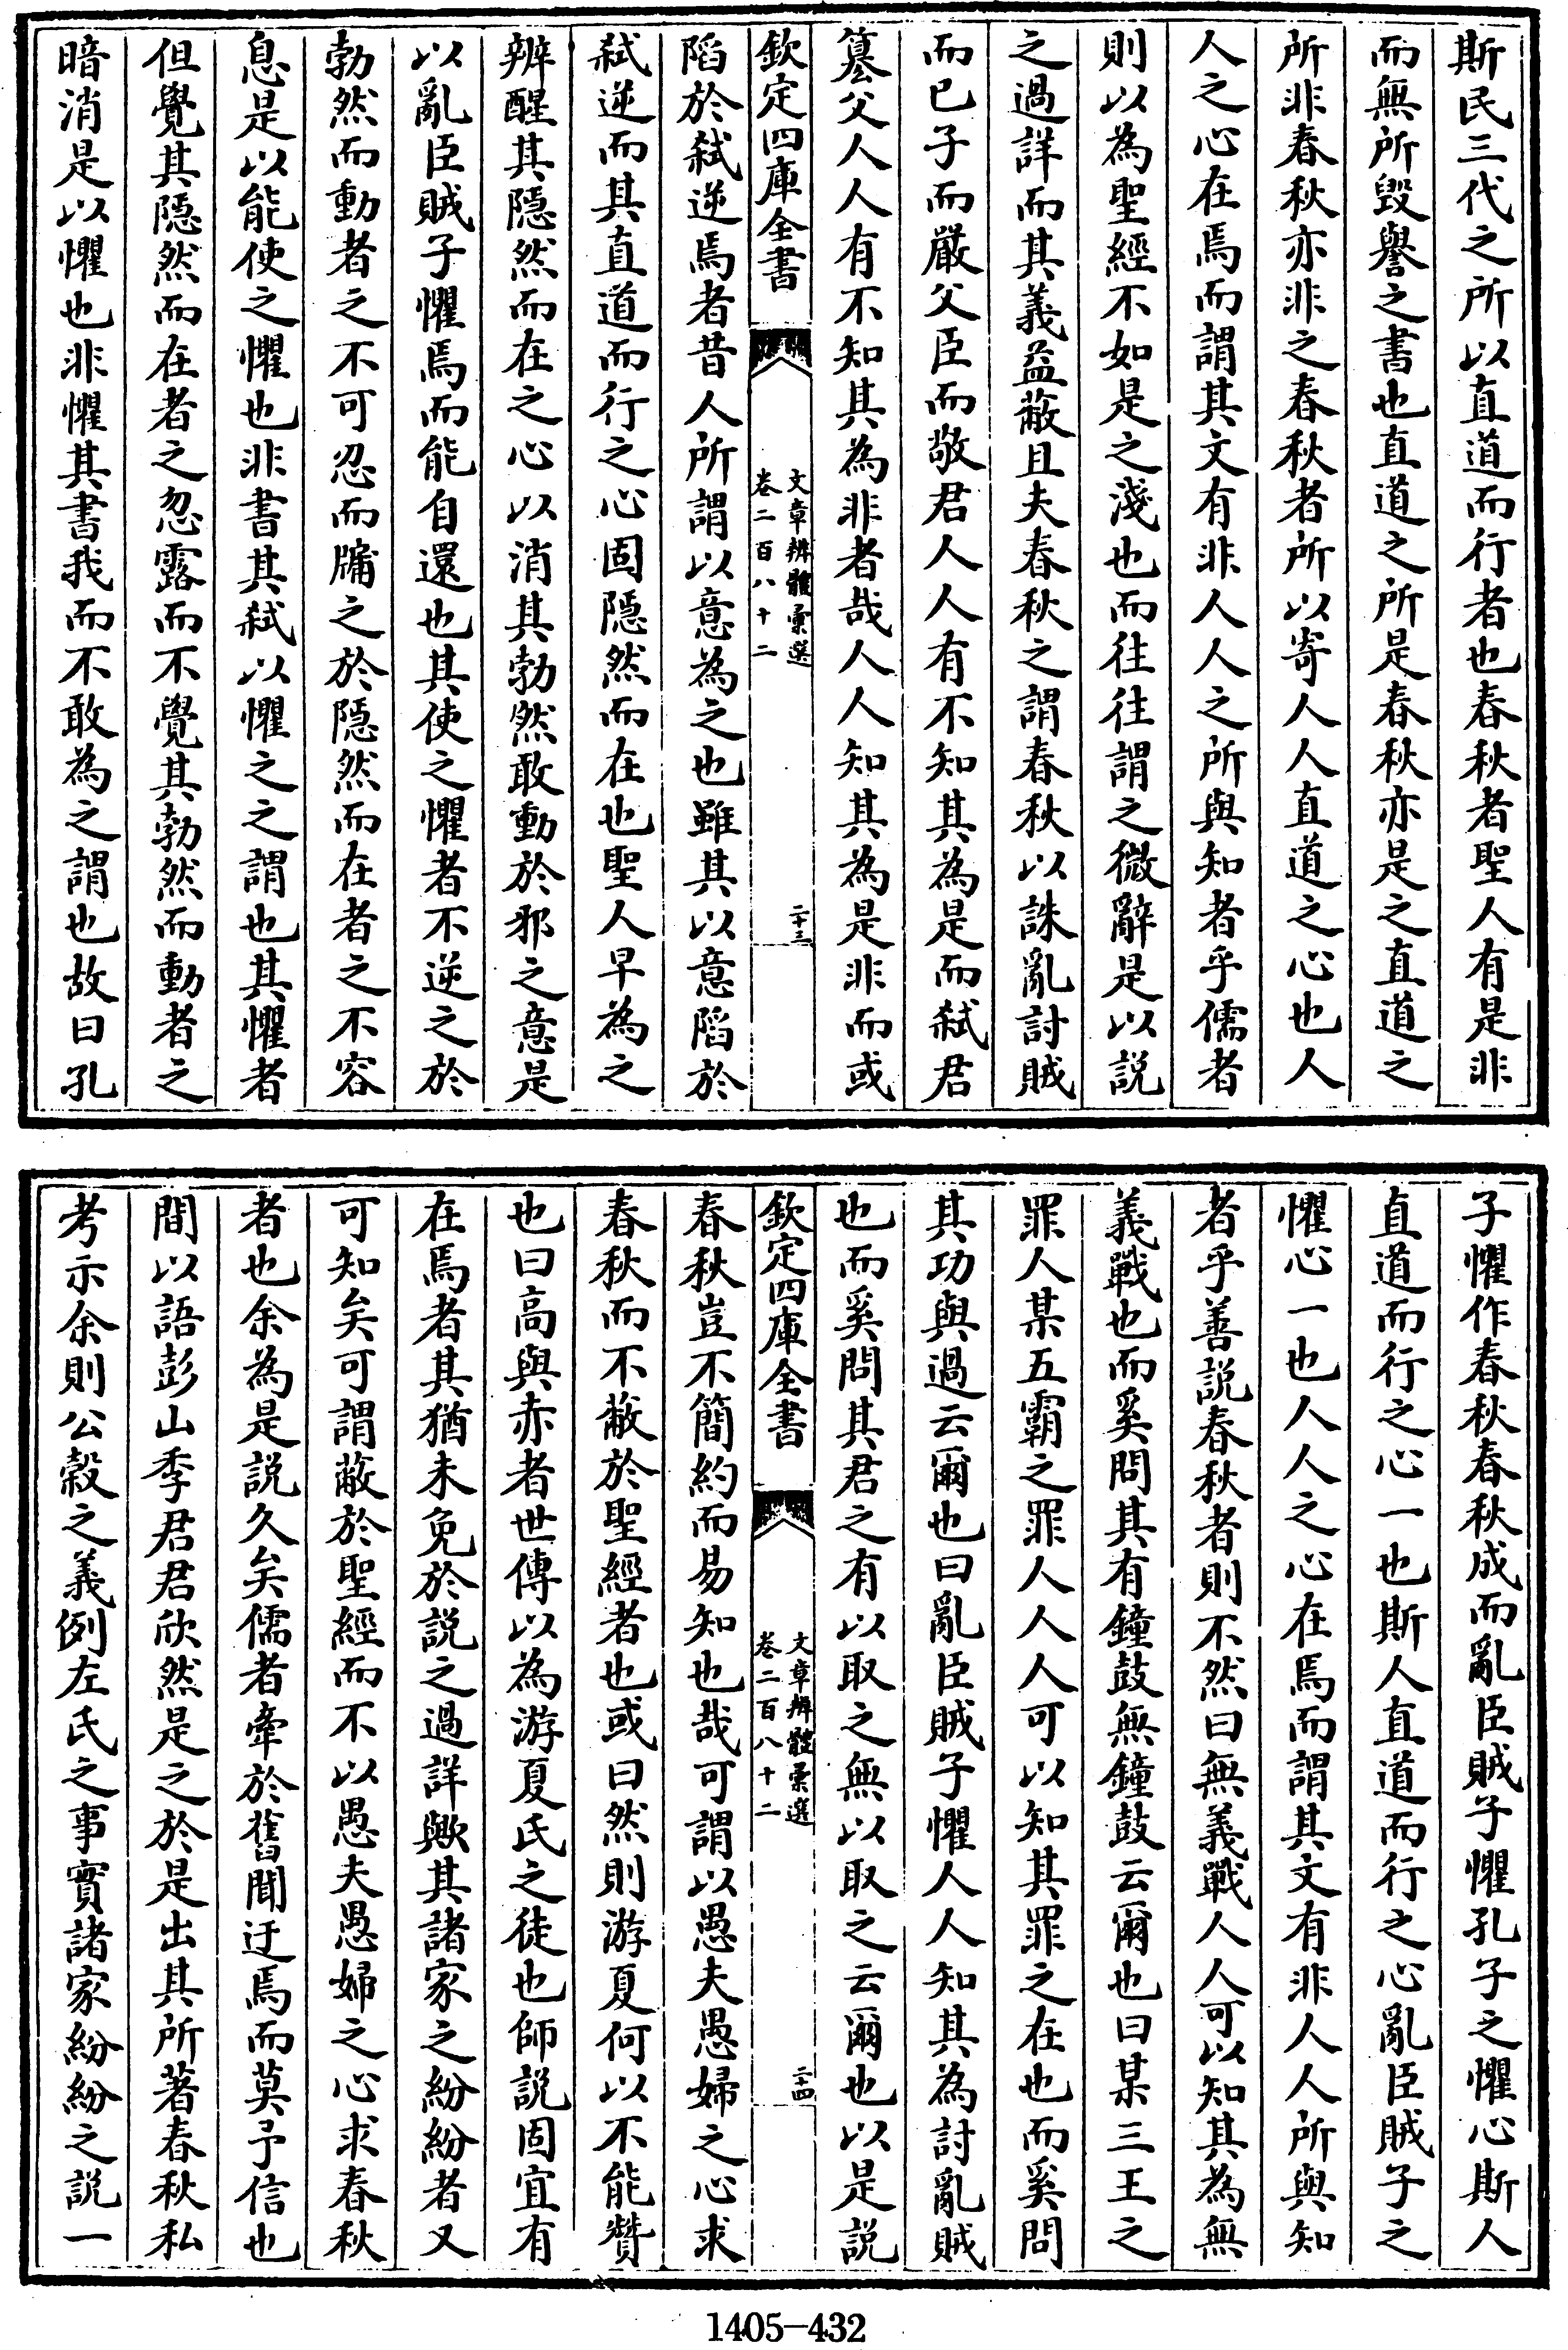 斯民三代之所以直道而行者也春秋者聖人有是非
而無所毀譽之書也直道之所是春秋亦是之直道之
所非春秋亦非之春秋者所以寄人人直道之心也人
人之心在焉而謂其文有非人人之所與知者乎儒者
則以為聖經不如是之淺也而往往謂之微辭是以説
之過詳而其義益蔽且夫春秋之謂春秋以誅亂討賊
而已子而嚴父臣而敬君人人有不知其為是而弑君
簒父人人有不知其為非者哉人人知其為是非而或
欽定四庫全書
文章辨體彙選
卷二百八十二
二十三
陷於弑逆焉者昔人所謂以意為之也雖其以意陷於
弑逆而其直道而行之心固隠然而在也聖人早為之
辨醒其隠然而在之心以消其勃然敢動於邪之意是
以亂臣賊子懼焉而能自還也其使之懼者不逆之於
勃然而動者之不可忍而牖之於隠然而在者之不容
息是以能使之懼也非書其弑以懼之之謂也其懼者
但覺其隠然而在者之忽露而不覺其勃然而動者之
暗消是以懼也非懼其書我而不敢為之謂也故曰孔
子懼作春秋春秋成而亂臣賊子懼孔子之懼心斯人
直道而行之心一也斯人直道而行之心亂臣賊子之
懼心一也人人之心在焉而謂其文有非人人所與知
者乎善説春秋者則不然曰無義戰人人可以知其為無
義戰也而奚問其有鐘鼓無鐘鼓云爾也曰某三王之
罪人某五霸之罪人人人可以知其罪之在也而奚問
其功與過云爾也曰亂臣賊子懼人人知其為討亂賊
也而奚問其君之有以取之無以取之云爾也以是説
欽定四庫全書
文章辨體彙選
卷二百八十二
二十四
春秋豈不簡約而易知也哉可謂以愚夫愚婦之心求
春秋而不蔽於聖經者也或曰然則游夏何以不能贊
也曰高與赤者世傳以為游夏氏之徒也師説固宜有
在焉者其猶未免於説之過詳歟其諸家之紛紛者又
可知矣可謂蔽於聖經而不以愚夫愚婦之心求春秋
者也余為是説久矣儒者牽於舊聞迂焉而莫予信也
間以語彭山季君君欣然是之於是出其所著春秋私
考示余則公穀之義例左氏之事實諸家紛紛之説一
1405-432